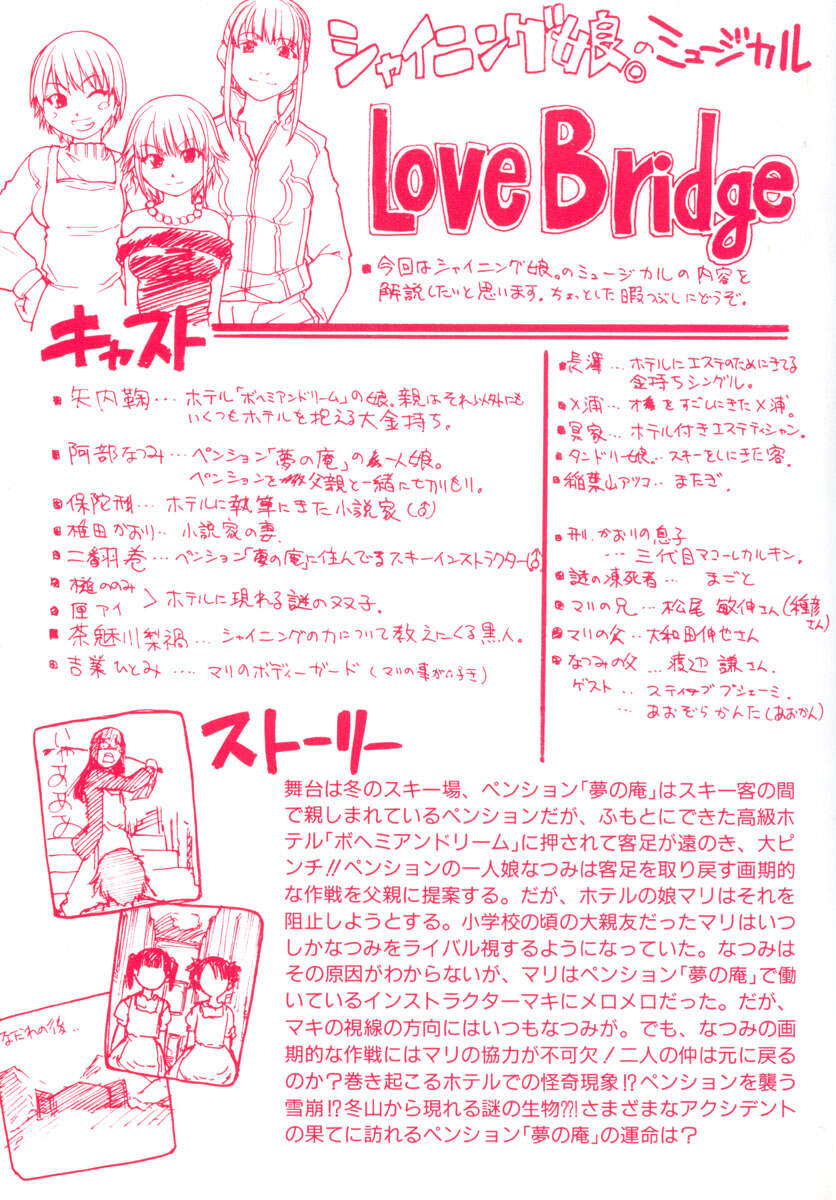 シャイニング娘。のミュージカル
Love Bridge
■今回はシャイニング娘。のミュージカルの内容を
解説したいと思います。ちょっとした暇つぶしにどうぞ。
キャスト
矢内鞠…ホテル「ボヘミアンドリーム」の娘。親はそれ以外にも
いくつもホテルを抱える大金持ち。
阿部なつみ…ペンション「夢の庵」の一人娘。
ペンションを父親と一緒に切りもり。
…ホテルに執筆にきた小説家(♂)
椎田かおり…小説家の妻。
二翻巻…ペンション「夢の庵」に住んでるスキーインストラクター(♂)
槌ののみ
匣アイ
ホテルに現れる謎の双子。
茶魅川梨禍…シャイニングの力について教えにくる黒人。
吉業ひとみ…マリのボディーガード(マリの事が好き)
長澤…ホテルにエステのためにきてる
金持ちシングル。
メ浦…をすごしにきたメ浦。
冥家…ホテル付きエステティシャン。
タンドリー娘。…スキーをしにきた客。
稲葉山アツコ…またぎ。
刑、かおりの息子
…三代目マコーレカルキン。
謎の凍死者…まごと
マリの兄…松尾敏伸さん(種彦さん)
マリの父…大和田伸也さん
なつみの父…渡辺謙さん
ゲスト…スティーブブシェーミ.
…あおぞらかんた(あおかん)
いやあぁぁぁ
なだれの後..
ストーリー
舞台は冬のスキー場、ペンション「夢の庵」はスキー客の間
で親しまれているペンションだが、ふもとにできた高級ホ
テル「ボヘミアンドリーム」に押されて客足が遠のき、大ピ
ンチ!!ペンションの一人娘なつみは客足を取り戻す画期的
な作戦を父親に提案する。だが、ホテルの娘マリはそれを
阻止しようとする。小学校の頃の大親友だったマリはいつ
しかなつみをライバル視するようになっていた。なつみは
その原因がわからないが、マリはペンション「夢の庵」で働
いているインストラクターマキにメロメロだった。だが、
マキの視線の方向にはいつもなつみが。でも、なつみの画
期的な作戦にはマリの協力が不可欠!二人の仲は元に戻る
のか?巻き起こるホテルでの怪奇現象!?ペンションを襲う
雪崩!?冬山から現れる謎の生物??!さまざまなアクシデント
の果てに訪れるペンション「夢の庵」の運命は?